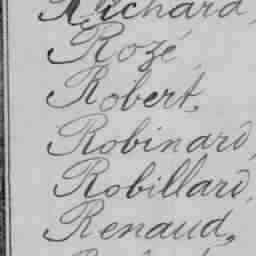 Richard,
Rozé,
Robert,
Robinard,
Robillard,
Renaud,